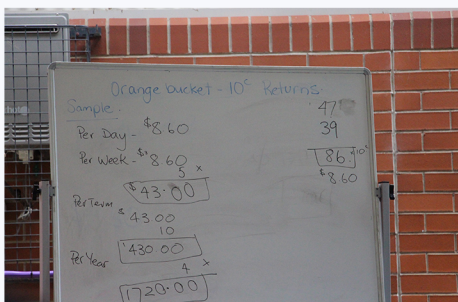 Orange bucket - 10c Returns.
Sample -
Per Day - $8.60
Per Week - $8.60
5 x
$43.00
Per Term $43.00
10
$430.00
Per Year
4 x
1720.00
47
39
86 10c
$8.60